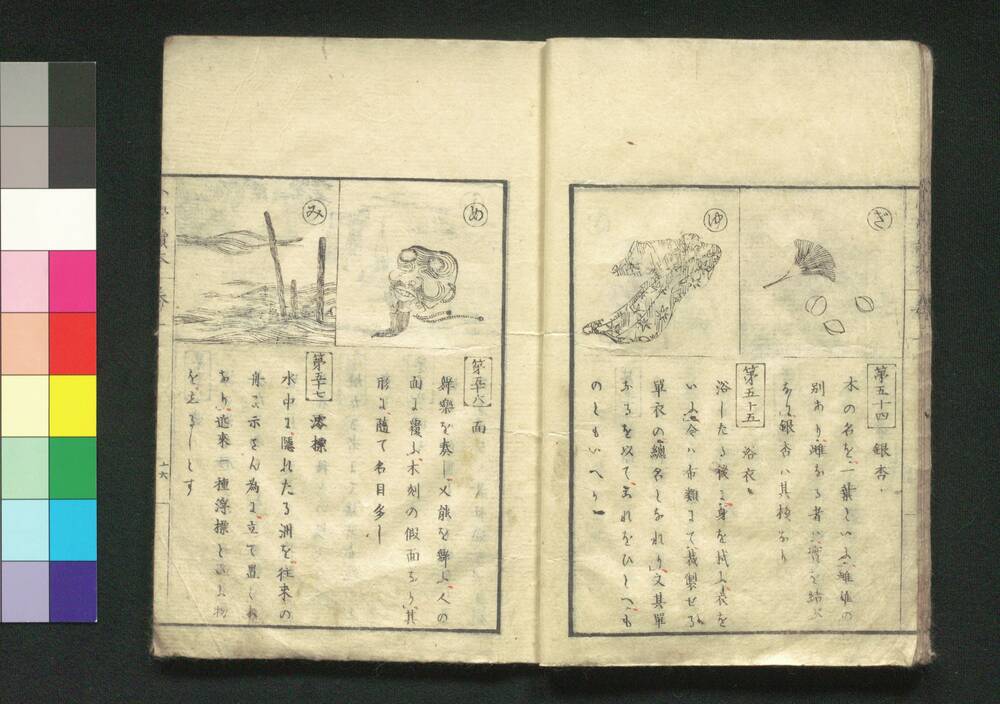 ぎ
ゆ
第五十四 銀杏
木の名を一葉といふ雌雄の
別あり雌なる者ハ實を結ぶ
なり銀杏ハ其核なり
第五十五 浴衣
浴したる後に身を拭ふ衣を
いふ今ハ布類にて裁製せる
單衣の總名となれり又其單
なるを以てこれをひとへも
のともいへり
め
み
第五十六 面
舞樂を奏し又能を舞ふ人の
面に覆ふ木刻の假面なり其
形に隨て名目多し
第五十七 澪標
水中に隱れたる洲を往来の
舟に示さん為に立て置くな
あり近来一種澪標と
を立るとす
十六